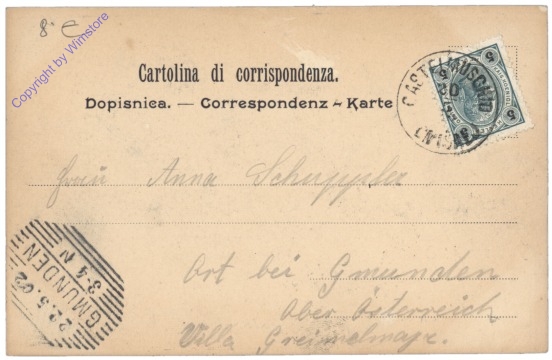 8.- €
Copyright by Wimstore
Cartolina di corrispondenza.
Dopisnica. — Correspondenz - Karte
CASTELMUSCHIO
5
5
5
Frau Anna Schuppler
Ort bei Gmunden
Ober Österreich
Villa
GMUNDEN
22.5.02
3-4 N